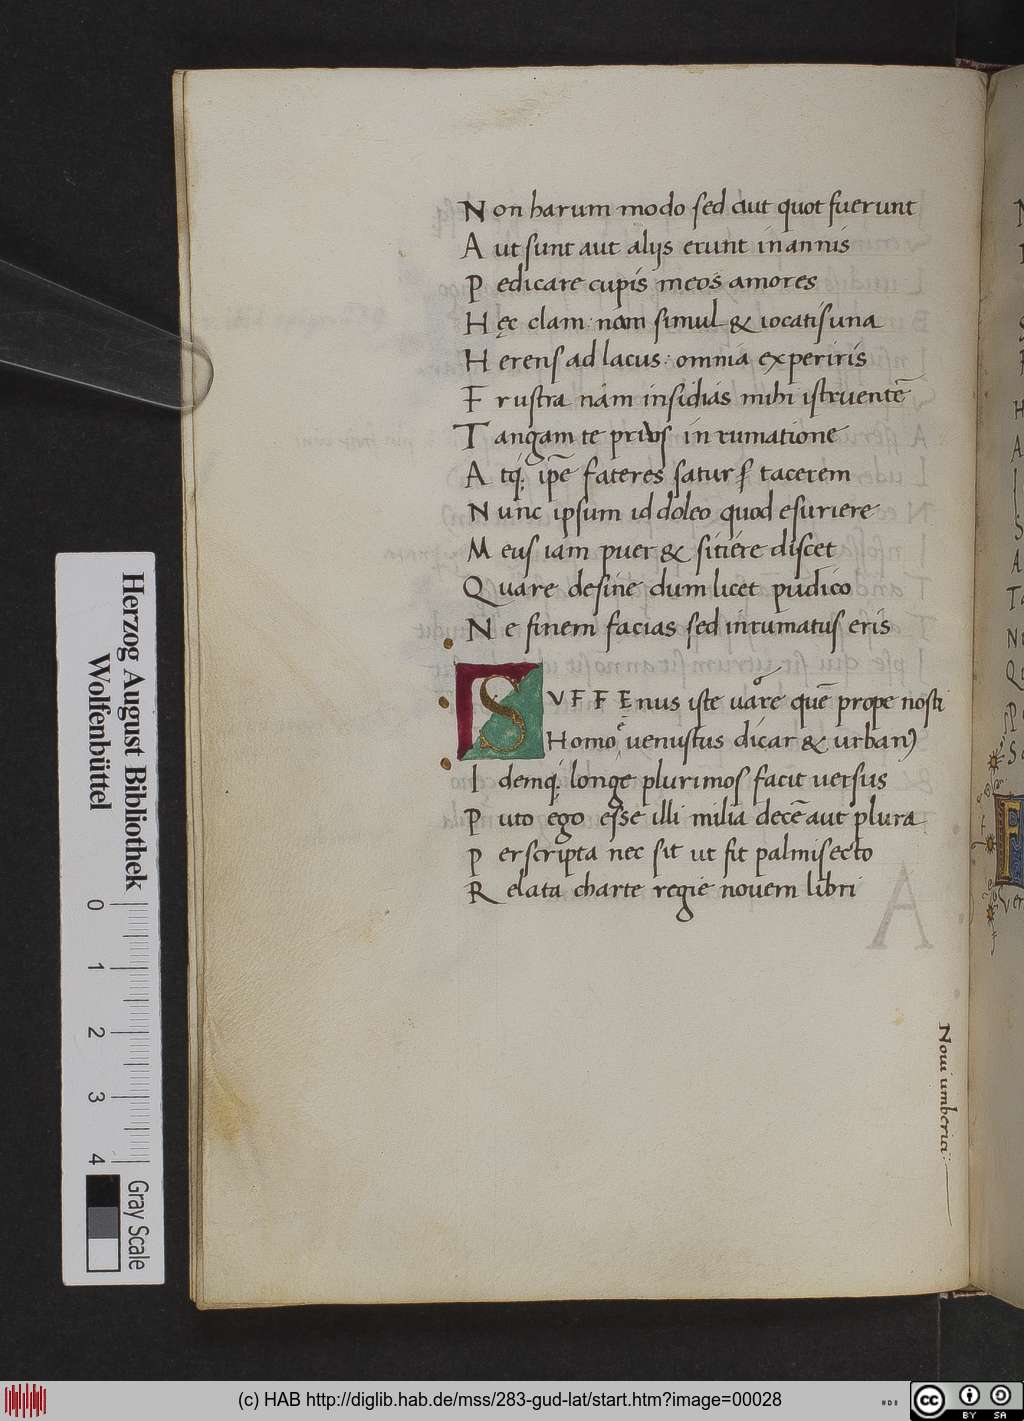 Non harum modo sed aut quot fuerunt
Aut sunt aut alijs erunt in annis
Pedicare cupis meos amores
Hęc clam: nam simul & iocatis una
Herens ad lacus: omnia experiris
Frustra nam insidias mihi istruentē
Tangam te prius inrumatione
Atq; ipē fateres satur s tacerem
Nunc ipsum id doleo quod esuriere
Meus iam puer & sitiere discet
Quare desine dum licet pudico
Ne finem facias sed inrumatus eris
SVFFEnus iste uare quē prope nosti
Homo ē uenustus dicax & urban9
Idemq; longe plurimos facit uersus
Puto ego esse illi milia decē aut plura
Perscripta nec sit ut fit palmisecto
Relata charte regie nouem libri
Noui umberici:
Herzog August Bibliothek
Wolfenbüttel
0 1 2 3 4
Gray Scale
(c) HAB http://diglib.hab.de/mss/283-gud-lat/start.htm?image=00028
cc BY SA